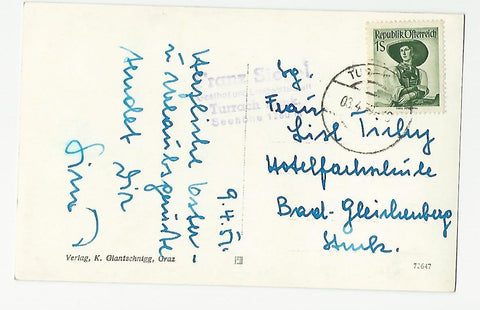 9.4.51.
Herzliche Oster-
u. Urlaubsgrüße
sendet Dir
Franz
Turrach
Seehöhe
Republik Österreich
1S
Sg.
Frau
Lisl Tichy
Hotelfachschule
Bad-Gleichenberg
Stmk.
Verlag, K. Glantschnigg, Graz